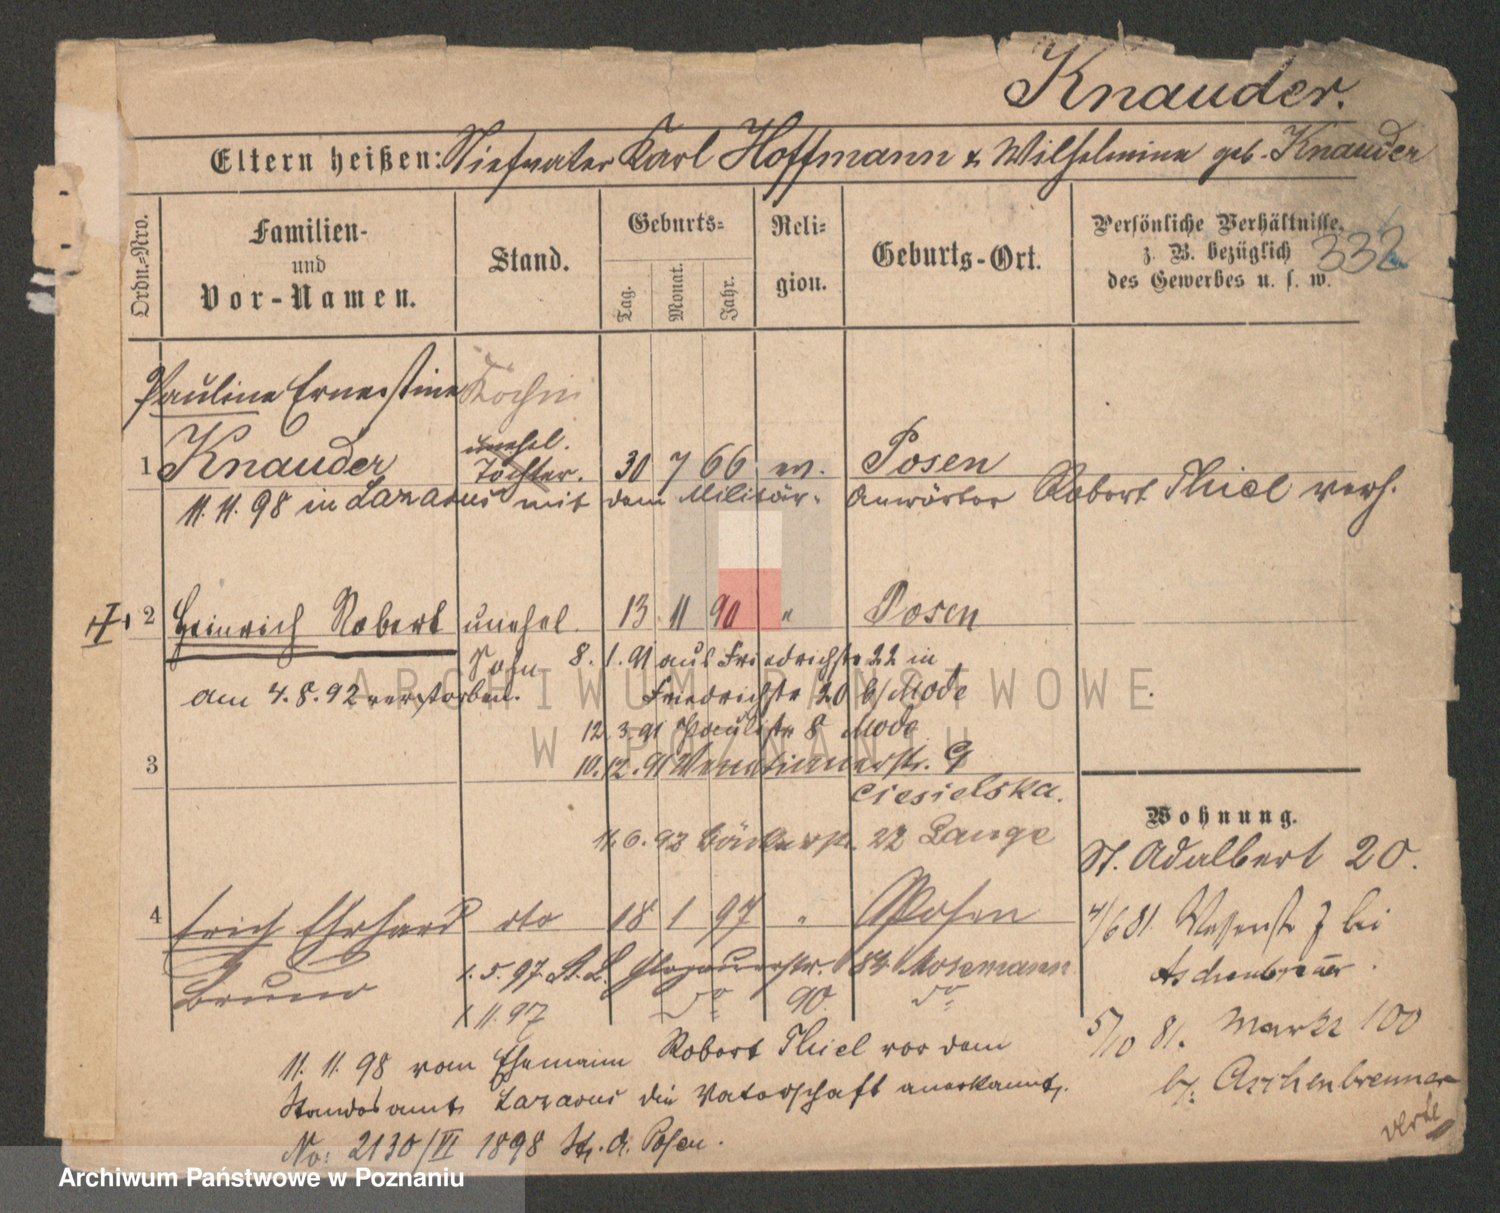 Knauder.
Eltern heißen: Stiefvater Karl Hoffmann & Wilhelmine geb. Knauder
Ordn.-Nro.
Familien-
und
Vor-Namen.
Stand.
Geburts-
Tag.
Monat.
Jahr.
Reli-
gion.
Geburts-Ort.
Persönliche Verhältnisse,
z. B. bezüglich
des Gewerbes u. s. w.
332
Pauline Ernestine Köchin
1 Knauder unehel. Tochter. 30 7 66 ev. Posen
11.11.98 in Lazarus mit dem Militär-Anwärter Robert Thiel verh.
2 Heinrich Robert unehel. 13 11 90 " Posen
Sohn 8.1.91 aus Friedrichstr 22 in
am 4.8.92 verstorben. Friedrichstr 20 b/ Mode
12.3.91 Paulistr 8 Mode
3 10.12.91 Venetianerstr. 9
Ciesielska.
11.6.92 22 Lange
4 Erich Ehrhard dto 18 1 97 " Posen
Bruno 1.5.97 St. L. Glogauerstr. 83
1.11.97 do 90. do
11.11.98 vom Ehemann Robert Thiel vor dem
Standesamte Lazarus die Vaterschaft anerkannt.
No: 2130/VI 1898 St. A. Posen.
Wohnung.
St. Adalbert 20.
4/6 81 bei
Aschenbrenner
5/10 81. Markt 100
b/: Aschenbrenner
verte
ARCHIWUM PAŃSTWOWE
W POZNANIU
Archiwum Państwowe w Poznaniu